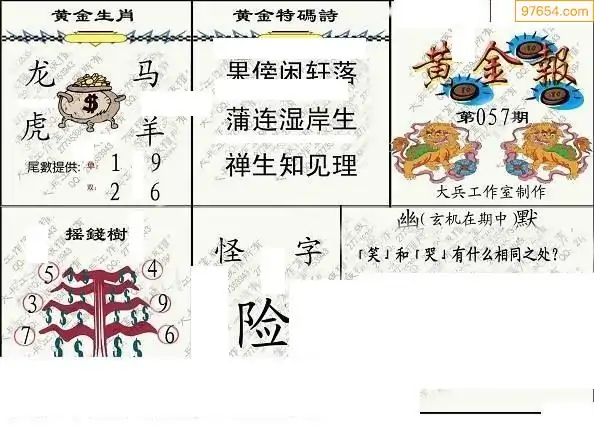 97654.com
黄金生肖
龙 马
虎 羊
尾數提供: 单: 1 9
双: 2 6
黄金特碼詩
果傍闲轩落
蒲连湿岸生
禅生知见理
黄金報
第057期
大兵工作室制作
摇錢樹
5 4
3 9
7 6
怪 字
险
幽(玄机在期中)默
「笑」和「哭」有什么相同之处?